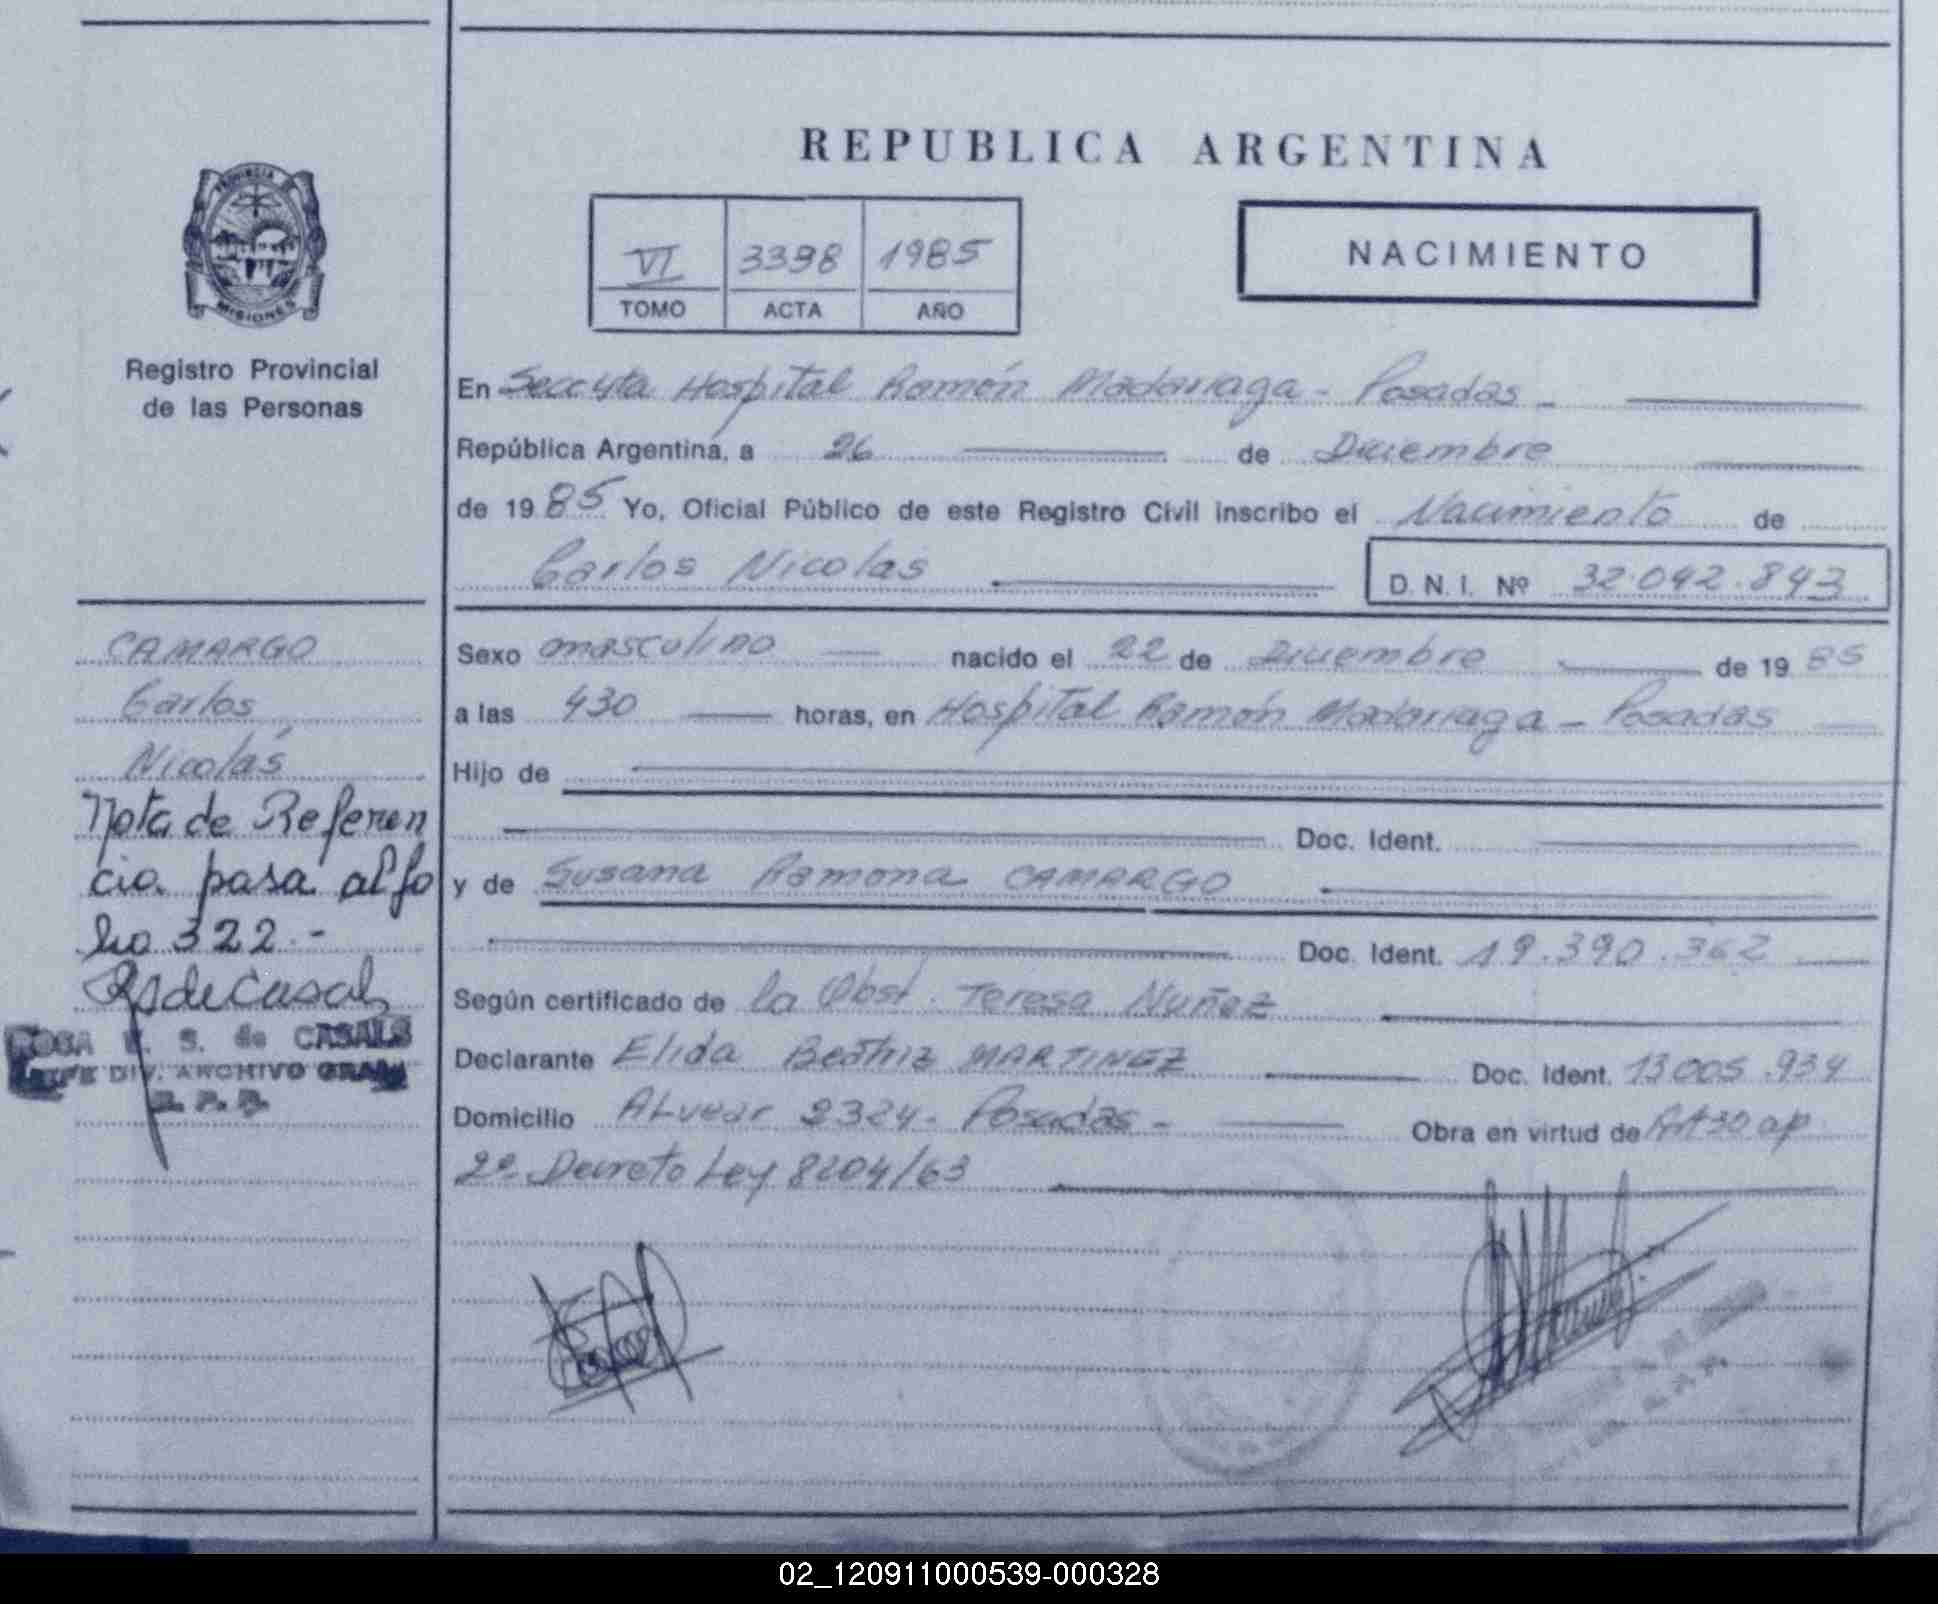 REPUBLICA ARGENTINA
PROVINCIA DE
MISIONES
VI 3398 1985
TOMO ACTA AÑO
NACIMIENTO
Registro Provincial
de las Personas
En Seccyta Hospital Ramón Madariaga - Posadas -
República Argentina, a 26 de Diciembre
de 1985 Yo, Oficial Público de este Registro Civil inscribo el Nacimiento de
Carlos Nicolas D. N. I. Nº 32.042.843
CAMARGO
Carlos
Nicolás
Nota de Referen
cia pasa al fo
lio 322.-
ROSA S. de CASALS
JEFE DIV. ARCHIVO GRAL
Sexo masculino nacido el 22 de Diciembre de 1985
a las 430 horas, en Hospital Ramón Madariaga - Posadas
Hijo de
Doc. Ident.
y de Susana Ramona CAMARGO
Doc. Ident. 19.390.362
Según certificado de la Obst. Teresa Nuñez
Declarante Elida Beatriz MARTINEZ Doc. Ident. 13005.934
Domicilio Alvear 2324 - Posadas - Obra en virtud de Art 30 ap
2º Decreto Ley 8204/63
02_120911000539-000328